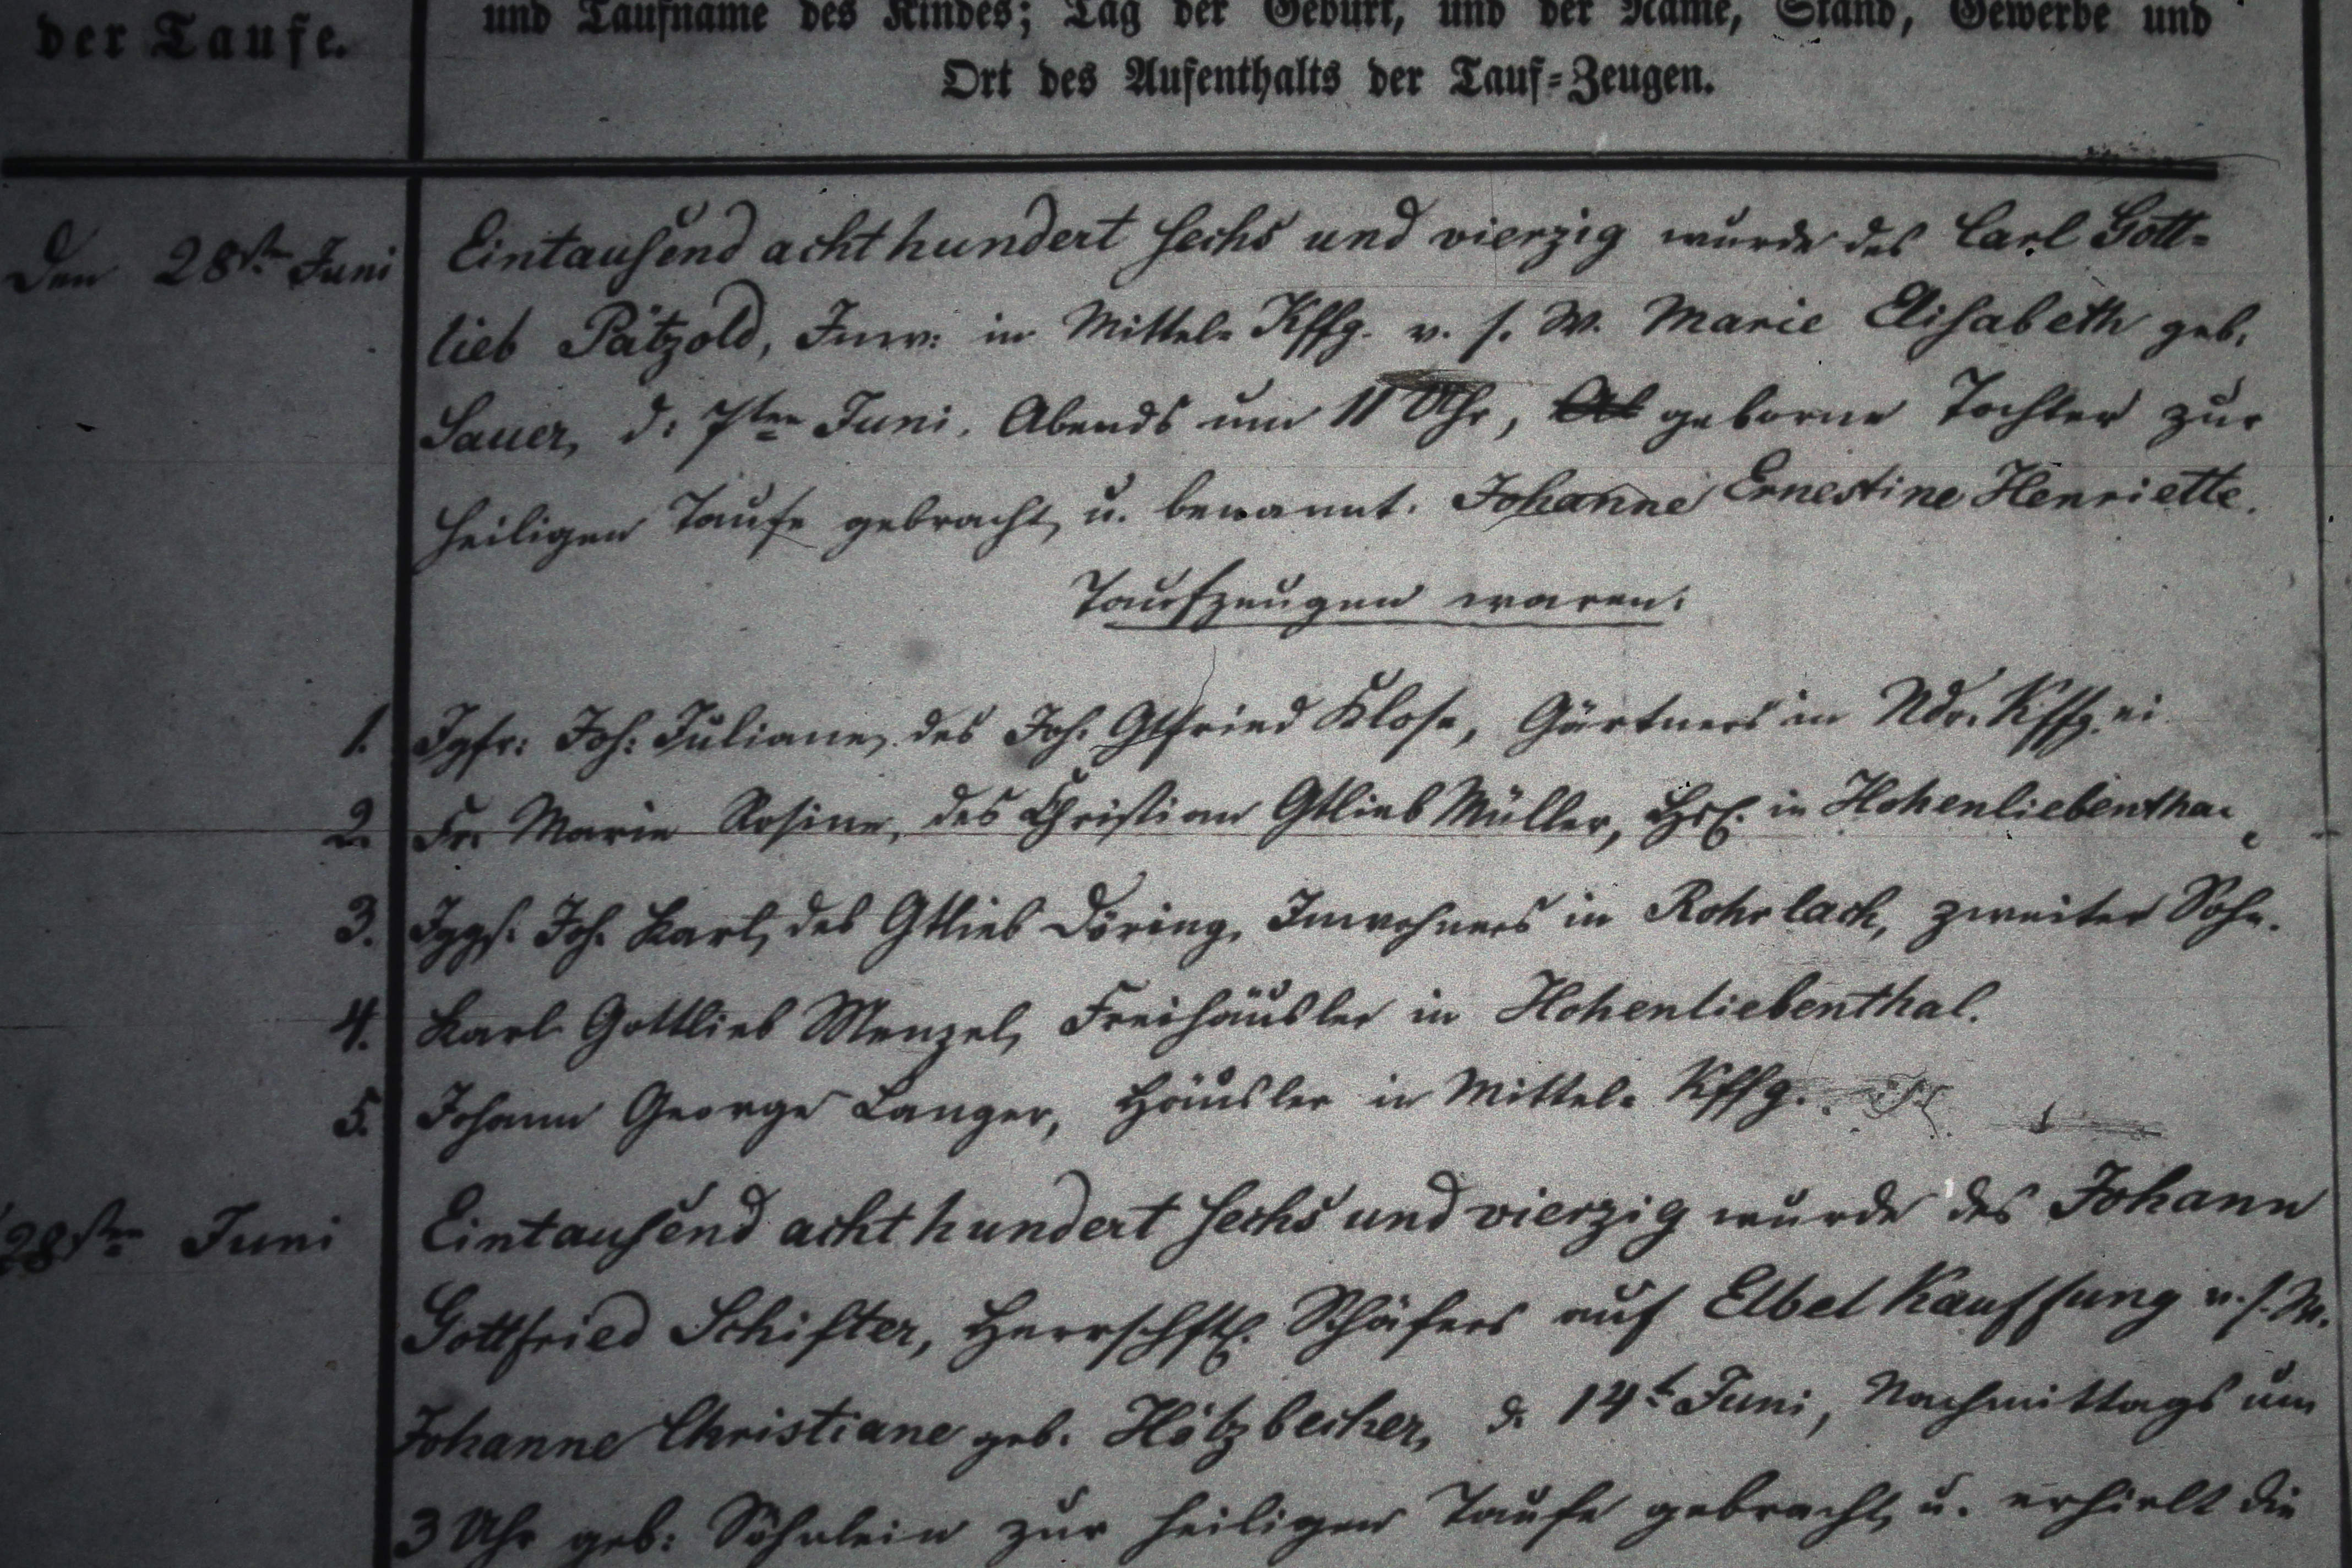 der Taufe.
und Taufname des Kindes; Tag der Geburt, und der Name, Stand, Gewerbe und
Ort des Aufenthalts der Tauf-Zeugen.
Den 28st. Juni
Eintausend acht hundert sechs und vierzig wurde des Carl Gott-
lieb Pätzold, Inw: in Mittel- Kffg. v. s. W. Marie Elisabeth geb.
Sauer, d: 7ten Juni. Abends um 11 Uhr, geborne Tochter zur
heiligen Taufe gebracht, u. benannt. Johanne Ernestine Henriette.
Taufzeugen waren:
1. Jgfr: Joh: Juliane, des Joh. Gtfried Klose, Gärtners in Ndr. Kffg.
2. Fr. Marie Rosine, des Christian Gtlieb Müller, Hsl. in Hohenliebenthal
3. Jggs. Joh. Karl, des Gtlieb Döring, Inwohners in Rohrlach, zweiter Sohn.
4. Karl Gottlieb Menzel, Freihäusler in Hohenliebenthal.
5. Johann George Langer, Häusler in Mittel- Kffg.
28sten Juni
Eintausend acht hundert sechs und vierzig wurde des Johann
Gottfried Schifter, Herrschftl. Schäfers auf Elbel Kauffung v. s. W.
Johanne Christiane geb. Hötzbecher, d. 14t Juni, Nachmittags um
3 Uhr geb: Söhnlein zur heiligen Taufe gebracht, u. erhielt die